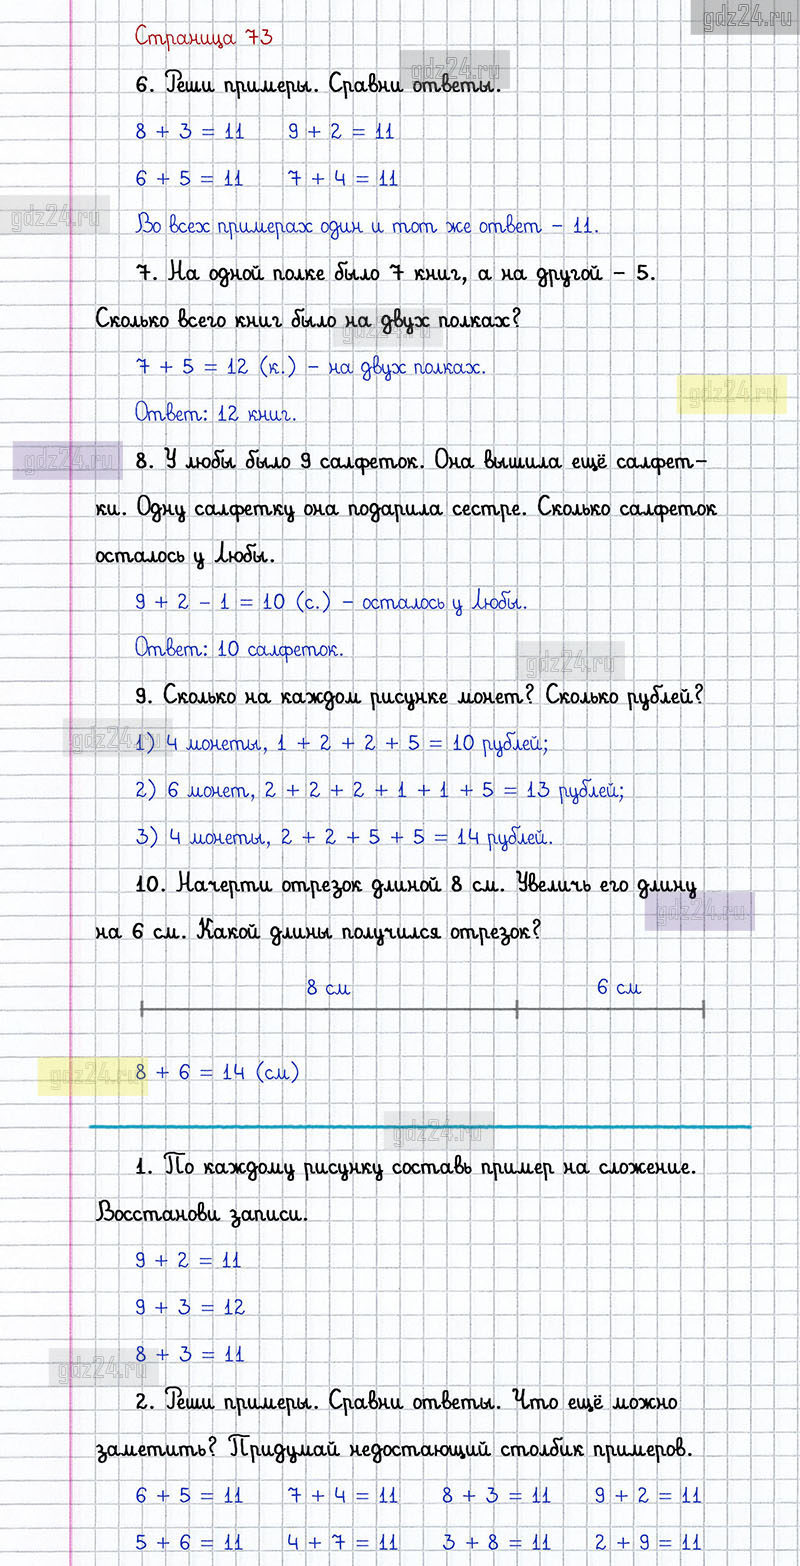 gdz24.ru
Страница 73
gdz24.ru
6. Реши примеры. Сравни ответы.
8 + 3 = 11 9 + 2 = 11
6 + 5 = 11 7 + 4 = 11
gdz24.ru
Во всех примерах один и тот же ответ – 11.
7. На одной полке было 7 книг, а на другой – 5.
Сколько всего книг было на двух полках?
gdz24.ru
7 + 5 = 12 (к.) – на двух полках.
gdz24.ru
Ответ: 12 книг.
gdz24.ru
8. У любы было 9 салфеток. Она вышила ещё салфет-
ки. Одну салфетку она подарила сестре. Сколько салфеток
осталось у Любы.
9 + 2 – 1 = 10 (с.) – осталось у Любы.
Ответ: 10 салфеток.
gdz24.ru
9. Сколько на каждом рисунке монет? Сколько рублей?
gdz24.ru
1) 4 монеты, 1 + 2 + 2 + 5 = 10 рублей;
2) 6 монет, 2 + 2 + 2 + 1 + 1 + 5 = 13 рублей;
3) 4 монеты, 2 + 2 + 5 + 5 = 14 рублей.
10. Начерти отрезок длиной 8 см. Увеличь его длину
gdz24.ru
на 6 см. Какой длины получился отрезок?
8 см 6 см
gdz24.ru
8 + 6 = 14 (см)
gdz24.ru
1. По каждому рисунку составь пример на сложение.
Восстанови записи.
9 + 2 = 11
9 + 3 = 12
8 + 3 = 11
gdz24.ru
2. Реши примеры. Сравни ответы. Что ещё можно
заметить? Придумай недостающий столбик примеров.
6 + 5 = 11 7 + 4 = 11 8 + 3 = 11 9 + 2 = 11
5 + 6 = 11 4 + 7 = 11 3 + 8 = 11 2 + 9 = 11